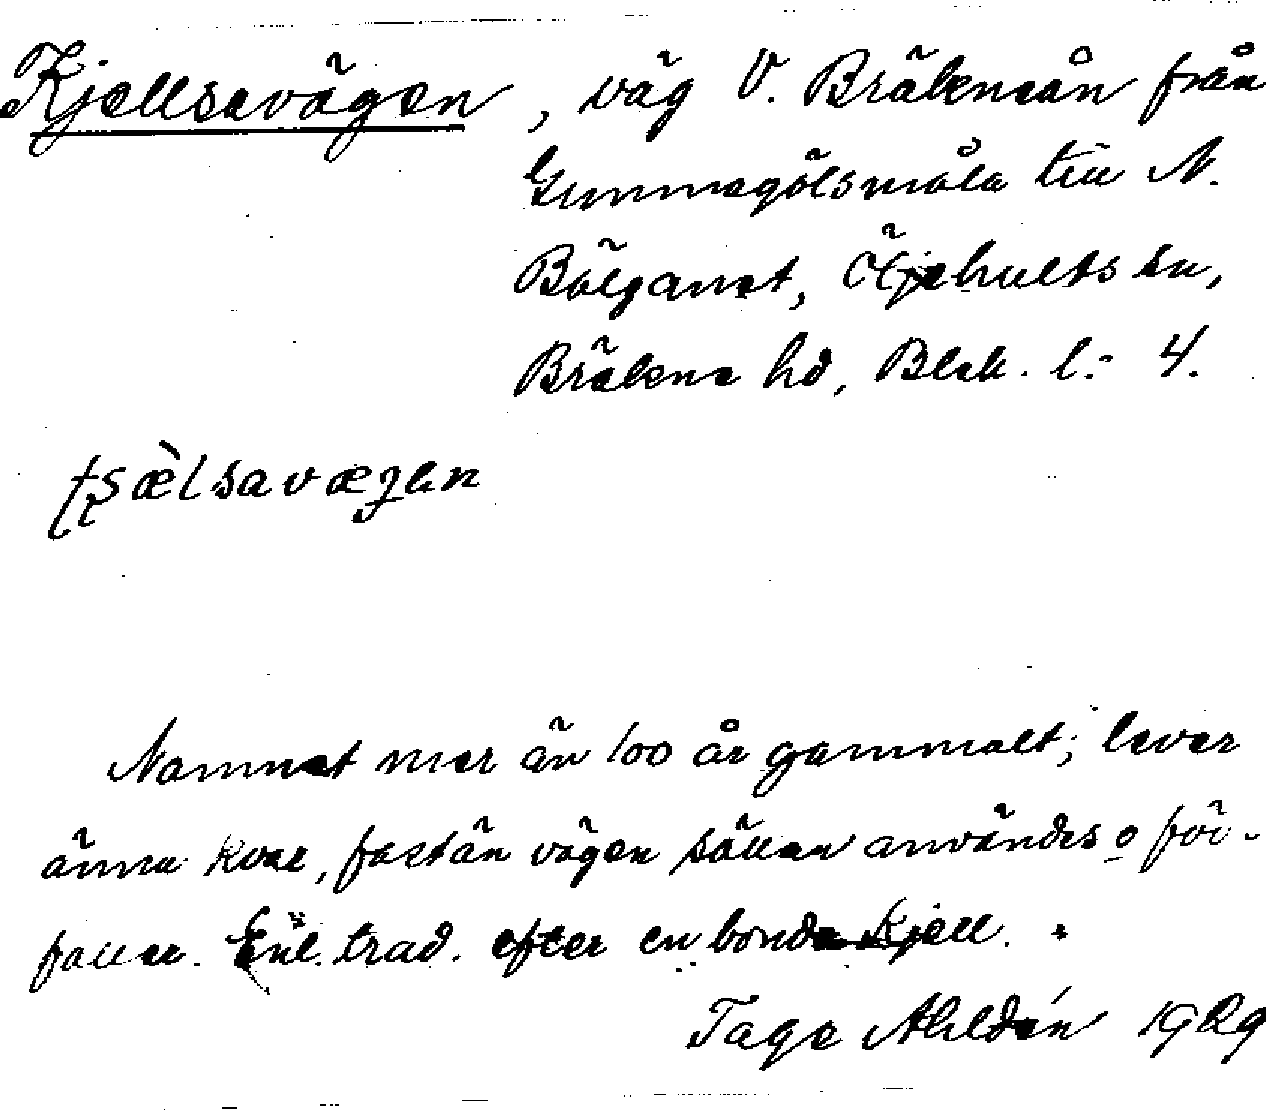 Kjellsavägen, väg V. Bräkneån från
Gunnagölsmåla till N.
Bölganet, Öljehults sn,
Bräkne hd, Blek. l:- 4.
ʈʂæ̀lsavægen
Namnet mer än 100 år gammalt; lever
ännu kvar, fastän vägen sällan användes o för-
faller. Enl. trad. efter en bonde Kjell.
Tage Ahldén 1929